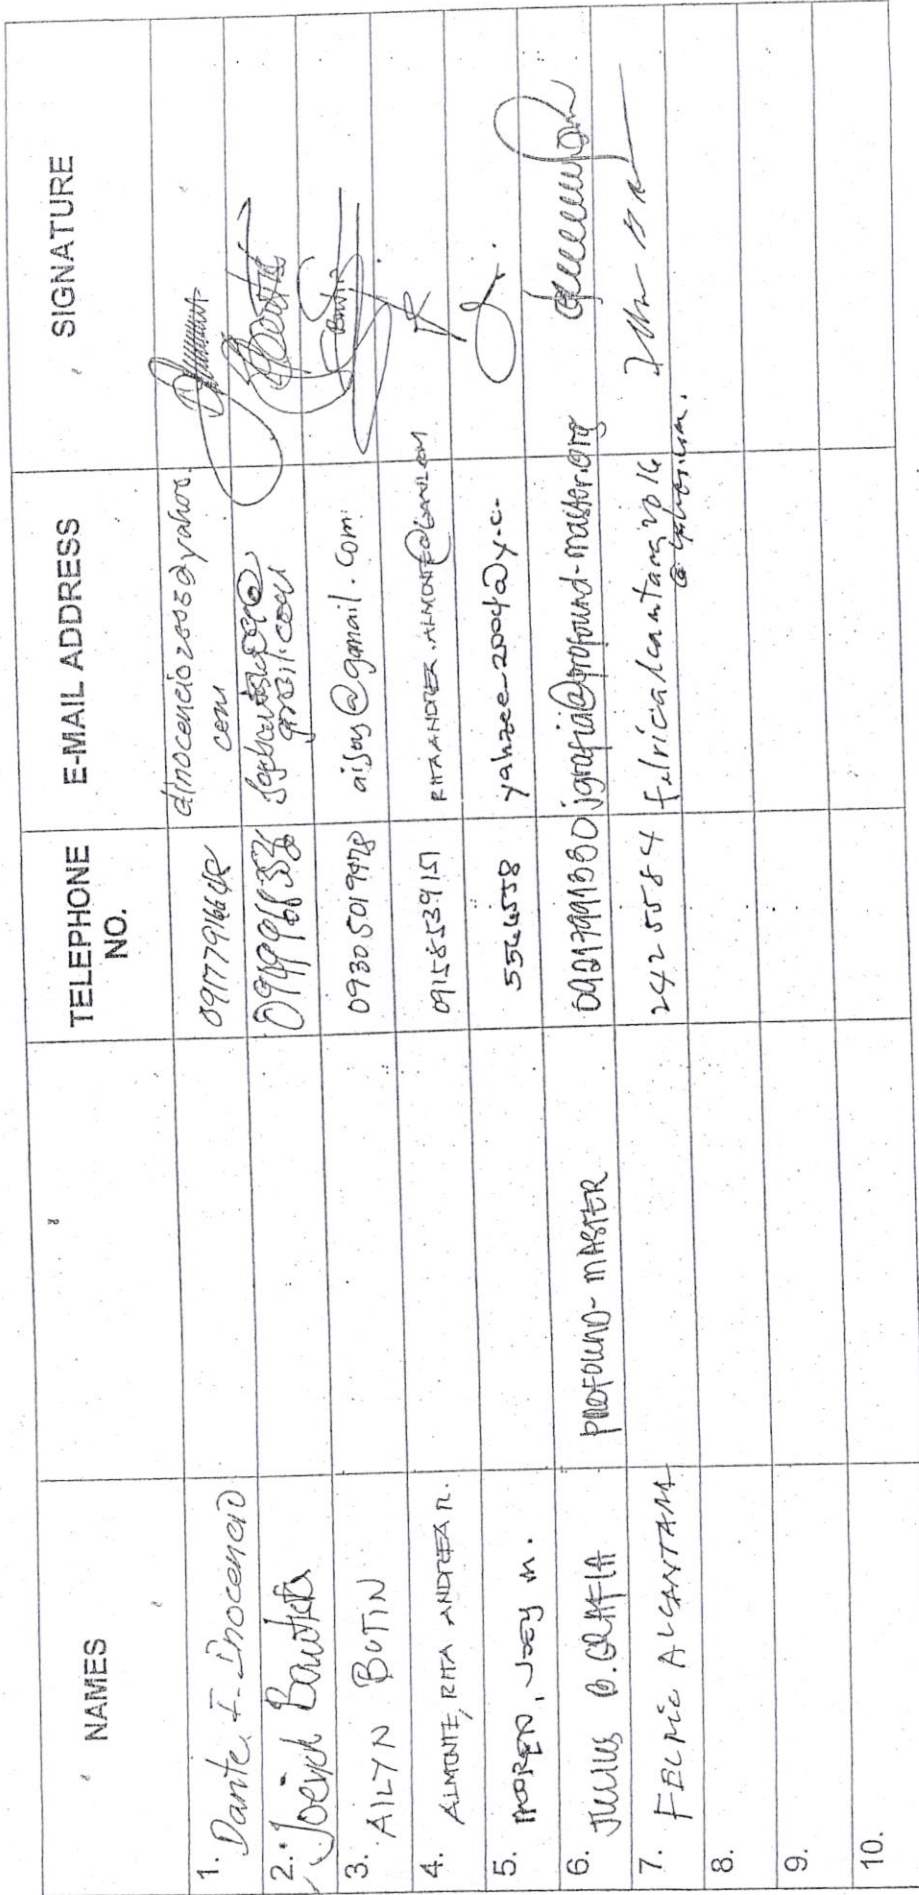 NAMES TELEPHONE NO. E-MAIL ADDRESS SIGNATURE
1. Dante F. Inocencio 09177916648 dinocencio2003@yahoo.
com
2. Bautista
3. AILYN BUTIN 09305019478 aijoy@gmail.com
4. ALMONTE, RITA ANDREA R. 09158539151 RITAANDREA.ALMONTE@GMAIL.COM
5. MORENO, JOEY M. 5564558 yahzee_2004@y.c.
6. JULIUS B. GRAFIA PROFOUND-MASTER jgrafia@profound-master.org
7. FELRIC ALCANTARA 2425584 felricalcantara2016
8.
9.
10.